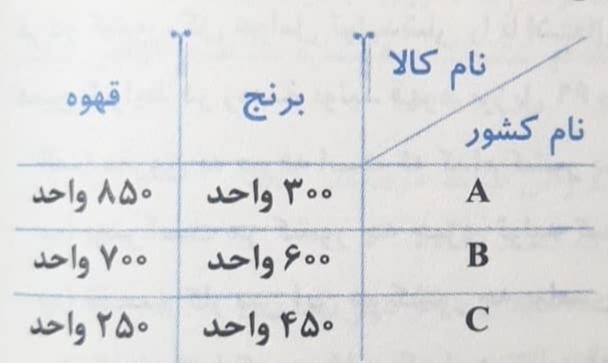 نام کالا برنج قهوه
نام کشور
A ۳۰۰ واحد ۸۵۰ واحد
B ۶۰۰ واحد ۷۰۰ واحد
C ۴۵۰ واحد ۲۵۰ واحد